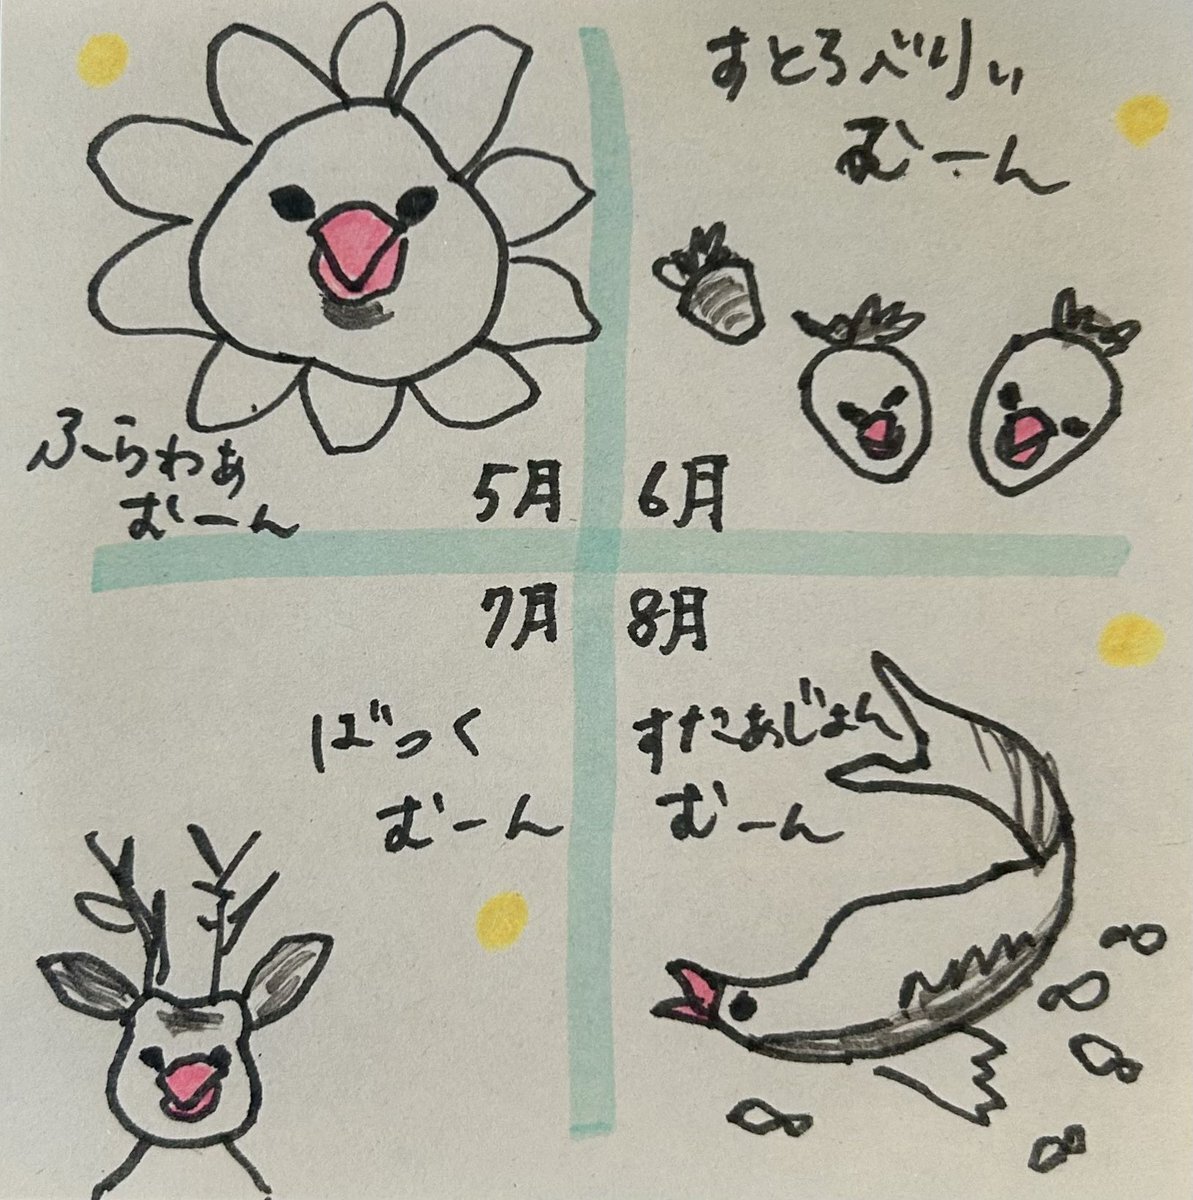 ふらわぁ
むーん
5月
すとろべりぃ
むーん
6月
7月
ばっく
むーん
8月
すたあじょん
むーん